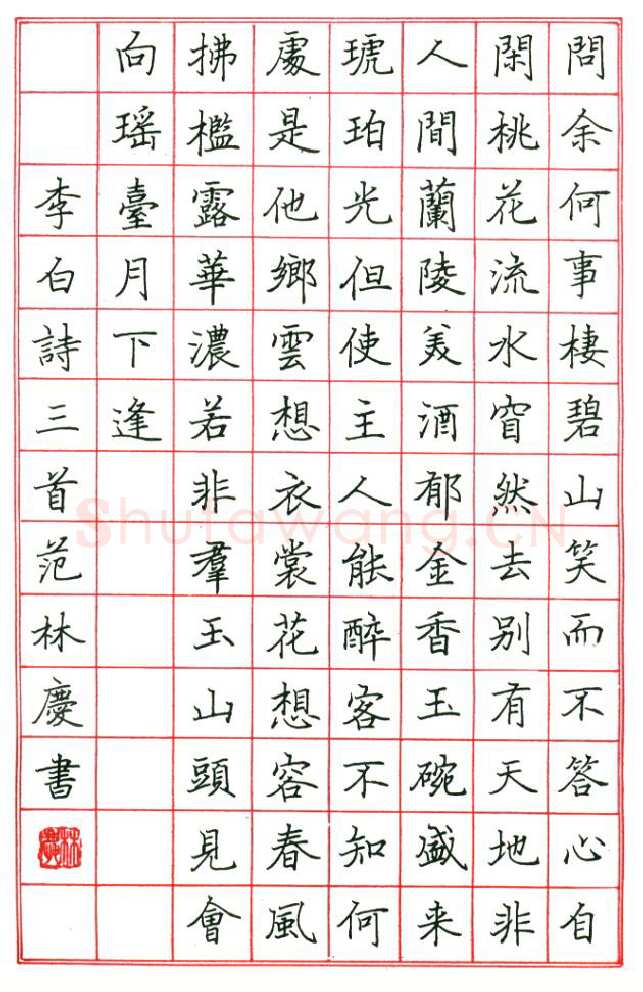 問余何事棲碧山笑而不答心自
閑桃花流水窅然去別有天地非
人間蘭陵美酒郁金香玉碗盛来
琥珀光但使主人能醉客不知何
處是他鄉雲想衣裳花想容春風
拂檻露華濃若非羣玉山頭見會
向瑶臺月下逢
李白詩三首范林慶書
Shufawang.CN